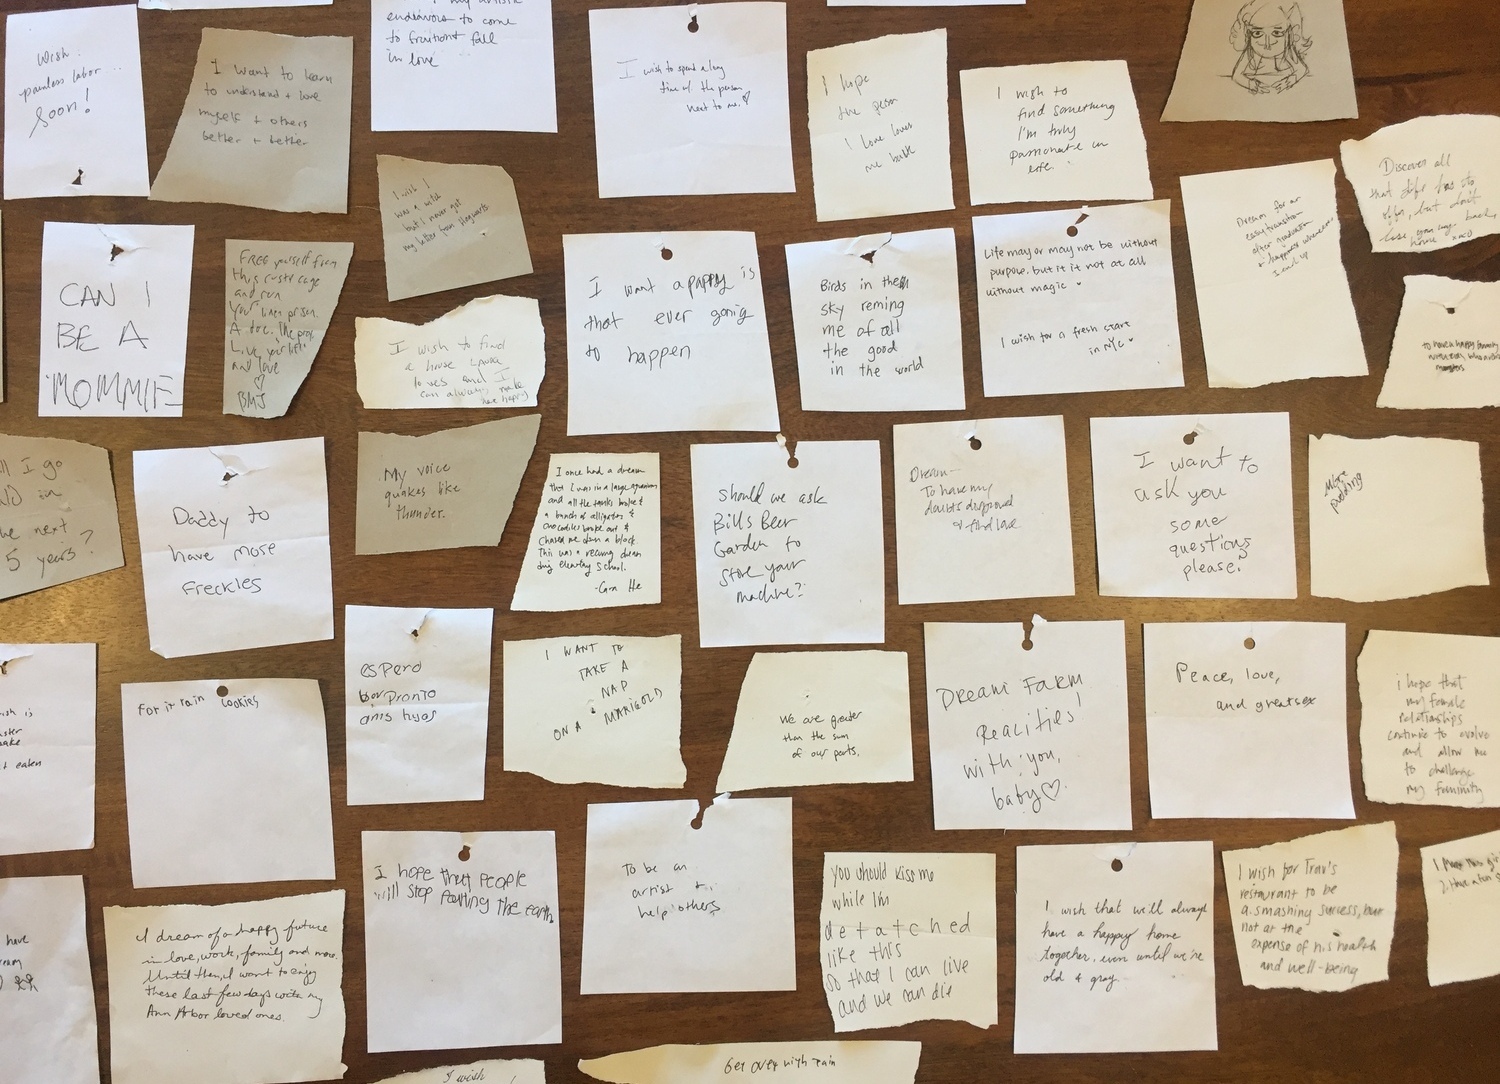 Wish:
painless labor...
Soon!
I want to learn
to understand + love
myself + others
better + better
endeavors to come
to fruition & fall
in love
I wish to spend a long
time w/ the person
next to me. ♡
I hope
the person
I love loves
me back
I wish to
find something
I'm truly
passionate in
life.
Discover all
that life has to
offer, but don't
lose your way back
home xoxo
I wish I
was a wild
but I never got
my letter from Hogwarts
Dream for an
easy transition
after graduation
+ happiness wherever
I end up
CAN I
BE A
MOMMIE
FREE yourself from
this rustic cage
and run
Your lives prison.
A doc. The prof.
Live your life!
and love
♡
BMJ
I wish to find
a house
loves and I
can always make
her happy
I want a puppy is
that ever going
to happen
Birds in the
sky reming
me of all
the good
in the world
Life may or may not be without
purpose. but it it not at all
without magic
I wish for a fresh start
in NYC
to have a happy family
I go
in
next
5 years?
Daddy to
have more
Freckles
My voice
quakes like
thunder.
I once had a dream
that I was in a large aquarium
and all the tanks broke &
a bunch of alligators &
crocodiles broke out &
chased me down a block.
This was a recurring dream
during elementary school.
Should we ask
Bill's Beer
Garden to
store your
machine?
Dream—
To have my
doubts disproved
& find love
I want to
ask you
some
questions
please?
More
pudding
For it rain cookies
espero
por Pronto
amis hyos
I WANT TO
TAKE A
NAP
ON A MARIGOLD
We are greater
than the sum
of our parts.
DREAM FARM
REALITIES!
with you,
baby ♡.
Peace, love,
and great sex
i hope that
my female
relationships
continue to evolve
and allow me
to challenge
my femininity
wish is
eaten
have
I dream of a happy future
in love, work, family and more.
Until then, I want to enjoy
these last few days with my
Ann Arbor loved ones.
I hope that People
will stop polluting the earth
To be an
artist +
help others
you should kiss me
while I'm
detatched
like this
so that I can live
and we can die
I wish that we'll always
have a happy home
together, even until we're
old & gray.
I wish for Trav's
restaurant to be
a smashing success, but
not at the
expense of his health
and well-being
I wish
Get over with pain